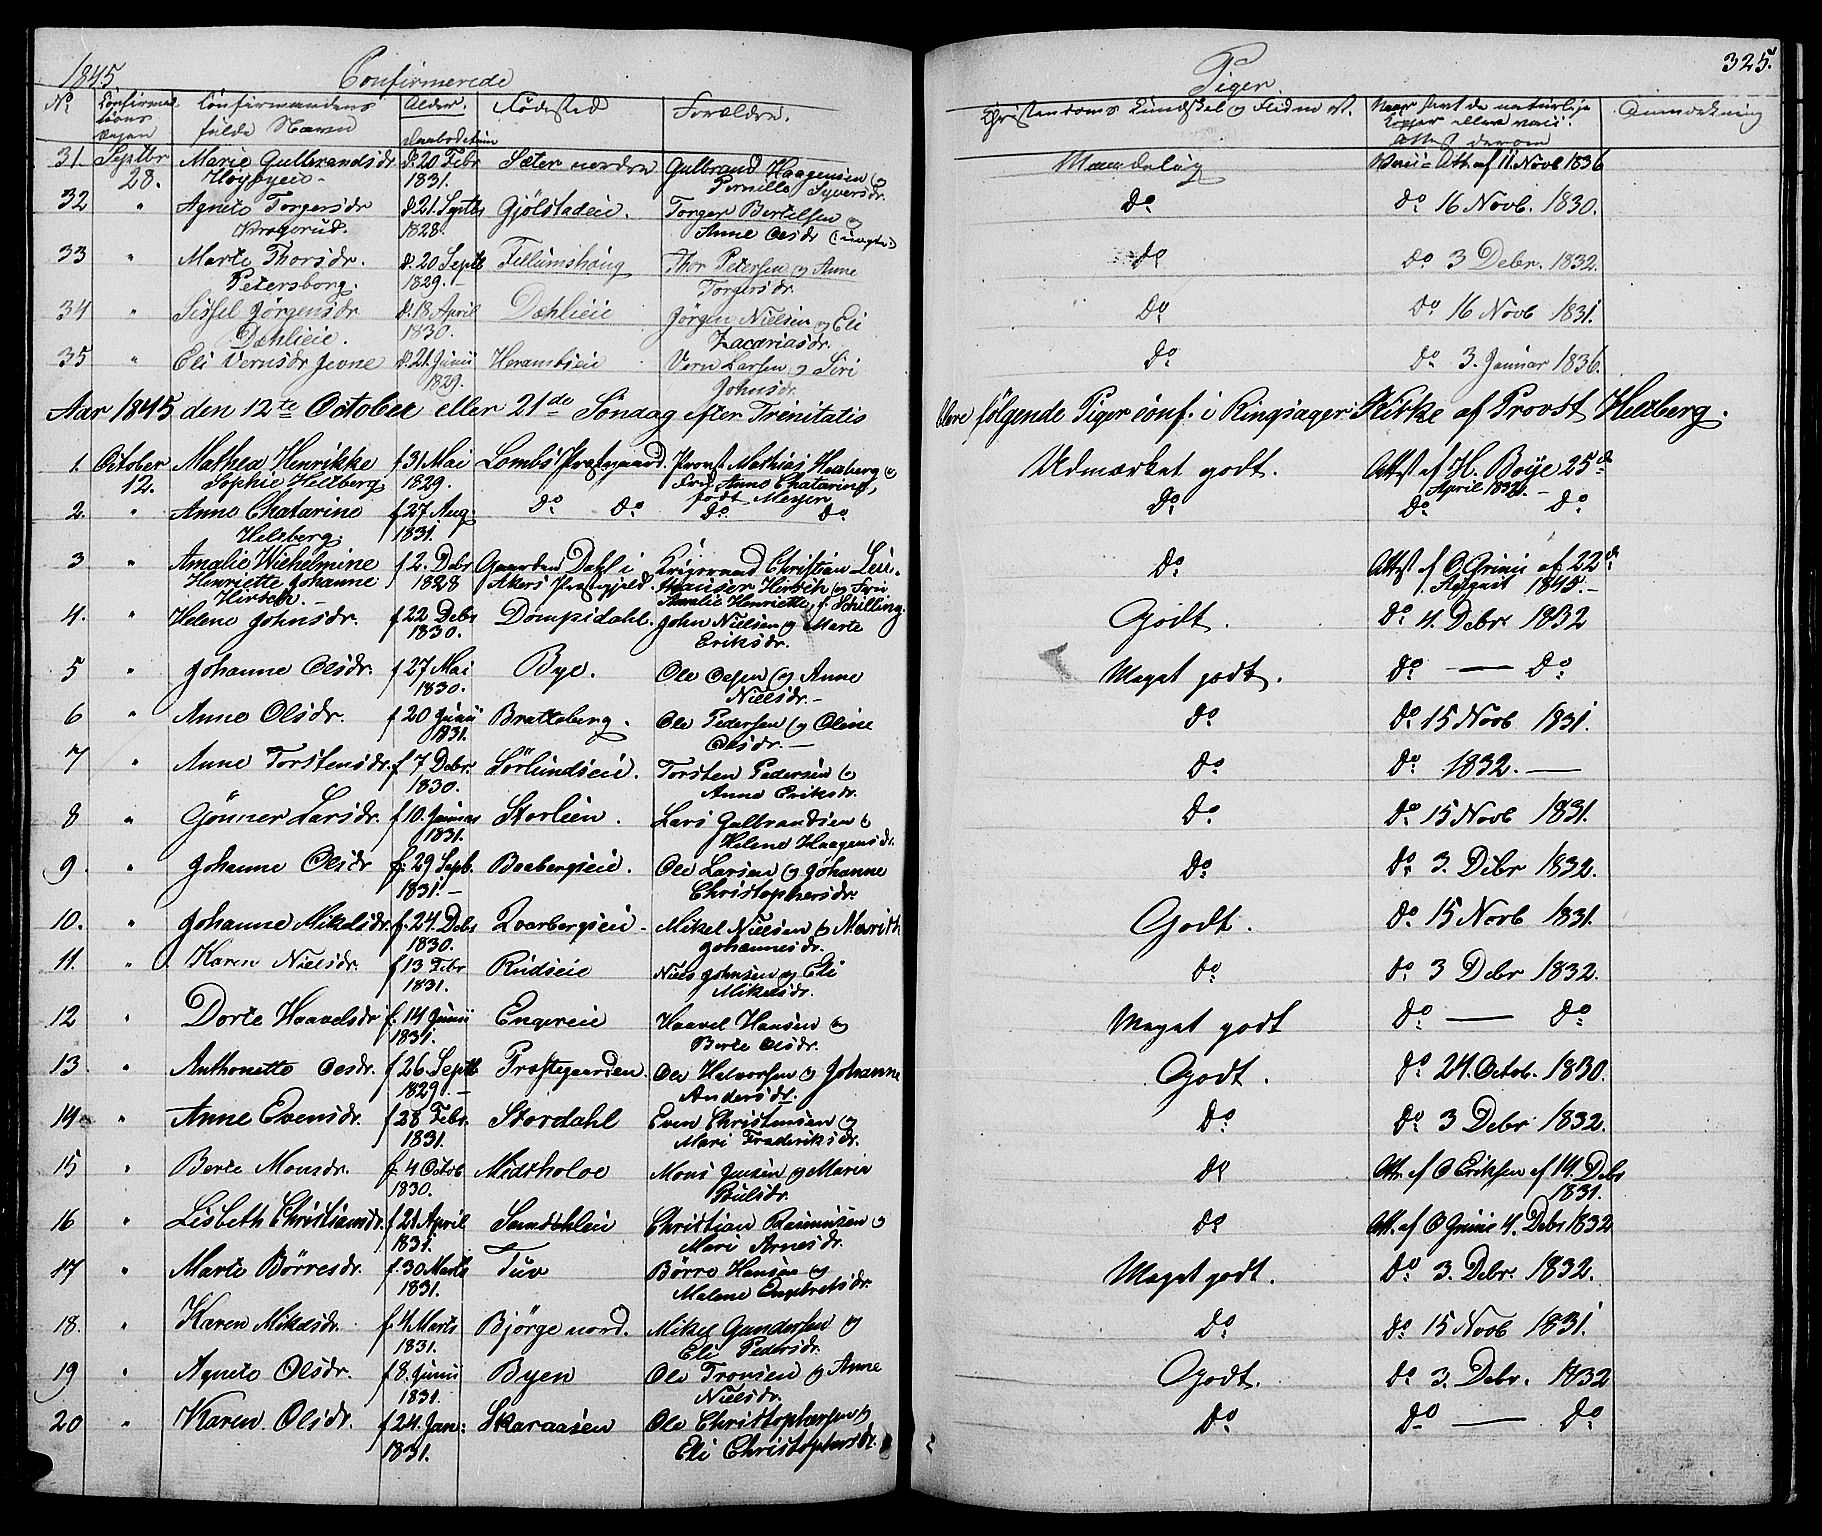 1845 Confirmerede Piger. 325.
No. Confirmations Dagen Confirmandens fulde Navn Alder. Daabsdatum Fødested Forældre. Christendoms Kundskab og Flid m. v. Naar havt de naturlige Kopper eller vacc. Attest derom Anmærkning
31. Septbr 28. Marie Gulbrandsdr Høybyeie d. 20 Febr 1831. Sæter nordre Gulbrand Haagensen og Pernille Syversdr. Maadelig Vacc. Att. af 11. Novb 1836
32 " Agnete Torgersdr d. 21. Septbr 1828. Gjölstadeie. Torger Bertelsen og Anne Olsdr (ungte) Do Do 16 Novb. 1830.
33 " Marte Thorsdr. Petersborg. d. 20 Septb 1829. Fillumshaug Thor Petersen og Anne Torgersdr. Do Do 3 Debr. 1832.
34 " Sissel Jörgensdr Dæhlieie. d. 18 April 1830. Dæhlieie Jörgen Nielsen og Eli Zacariasdr. Do Do 16 Novb 1831.
35 " Eli Vernsdr Jevne d. 21. Junii 1829. Herambseie Vern Larsen og Siri Johnsdr. Do Do 3. Januar 1836.
Aar 1845 den 12te October eller 21de Söndag efter Trinitatis bleve følgende Piger conf. i Ringsager Kirke af Provst Heltzberg.
1. October 12. Mathea Henrikke Sophie Heltzberg f 31 Mai 1829. Lombs Præstegaard. Provst Mathias Heltzberg og Fru Anne Chatarine, født Meyer Udmærket godt. Attest af H. Boye 25de April 1832.
2. " Anne Chatarine Heltzberg f 27 Aug. 1831. Do Do Do Do Do Do Do
3 " Amalie Wilhelmine Henriette Johanne Hirsch. f 2. Debr 1828 Gaarden Dahl i Akers Præstegjeld. Krigsraad Christian Hirsch og Fru Amalie Henriette f. Schilling. Do Attest af O Griiis af 22de August 1845.
4. " Helene Johnsdr. f 22 Debr 1830. Dompidahl. John Nielsen og Marte Eriksdr. Godt. Do 4. Debr 1832
5 " Johanne Olsdr. f 27 Mai 1830. Bye. Ole Olsen og Anne Nielsdr. Meget godt. Do — Do
6 " Anne Olsdr. f 20 Junii 1831. Bratteberg. Ole Pedersen og Oline Olsdr. Do Do 15 Novb 1831.
7 " Anne Torstensdr. f 7 Debr. 1830. Sörlundseie. Torsten Pedersen og Anne Eriksdr. Do Do 1832.
8 " Gönner Larsdr. f 10. Januar 1831. Storlien. Lars Gulbrandsen og Helene Haagensdr. Do Do 15 Novb 1831.
9. " Johanne Olsdr f. 29 Sepb. 1831. Boebergseie. Ole Larsen og Johanne Christophersdr. Do Do 3. Debr 1832.
10. " Johanne Mikelsdr. f. 24. Debr 1830. Kvarbergseie Mikel Nielsen og Marith Johannesdr. Godt. Do 15 Novb 1831.
11. " Karen Nielsdr. f 13 Febr 1831. Rudseie Niels Johnsen og Eli Mikelsdr. Do Do 3 Debr 1832.
12 " Dorte Haavelsdr f. 14 Junii 1831. Engereie Haavel Hansen og Berte Olsdr. Meget godt Do — Do
13. " Anthonette Olsdr. f 26. Septb 1829. Præstegaarden. Ole Halvorsen og Johanne Andersdr. Godt. Do 24. Octob. 1830.
14 " Anne Evensdr. f 28 Febr. 1831. Stordahl Even Christensen og Mari Frederiksdr. Do Do 3 Debr 1832.
15 " Berte Monsdr. f. 4 Octob 1830. Midtholoe Mons Jensen og Maria Pulsdr. Do Att. af O Eriksen af 14. Debr 1831.
16 " Lisbeth Christiansdr. f 21 April 1831. Sandahleie Christian Rasmusen og Mari Arnesdr. Do Att. af O Griiis 4. Debr 1832
17 " Marte Börresdr. f. 30 Marts 1831. Tuv Börre Hansen og Malene Engebretsdr. Meget godt. Do 3. Debr. 1832.
18. " Karen Mikelsdr. f. 4 Marts 1831. Bjørge nord. Mikel Gundersen og Eli Pedersdr. Do Do 15 Novb 1831.
19 " Agnete Olsdr. f 8. Junii 1831. Byen Ole Tronsen og Anne Nielsdr. Godt. Do 3. Debr. 1832
20 " Karen Olsdr. f 24. Jan: 1831. Skaraasen Ole Christophersen og Eli Christophersdr. Do Do — Do